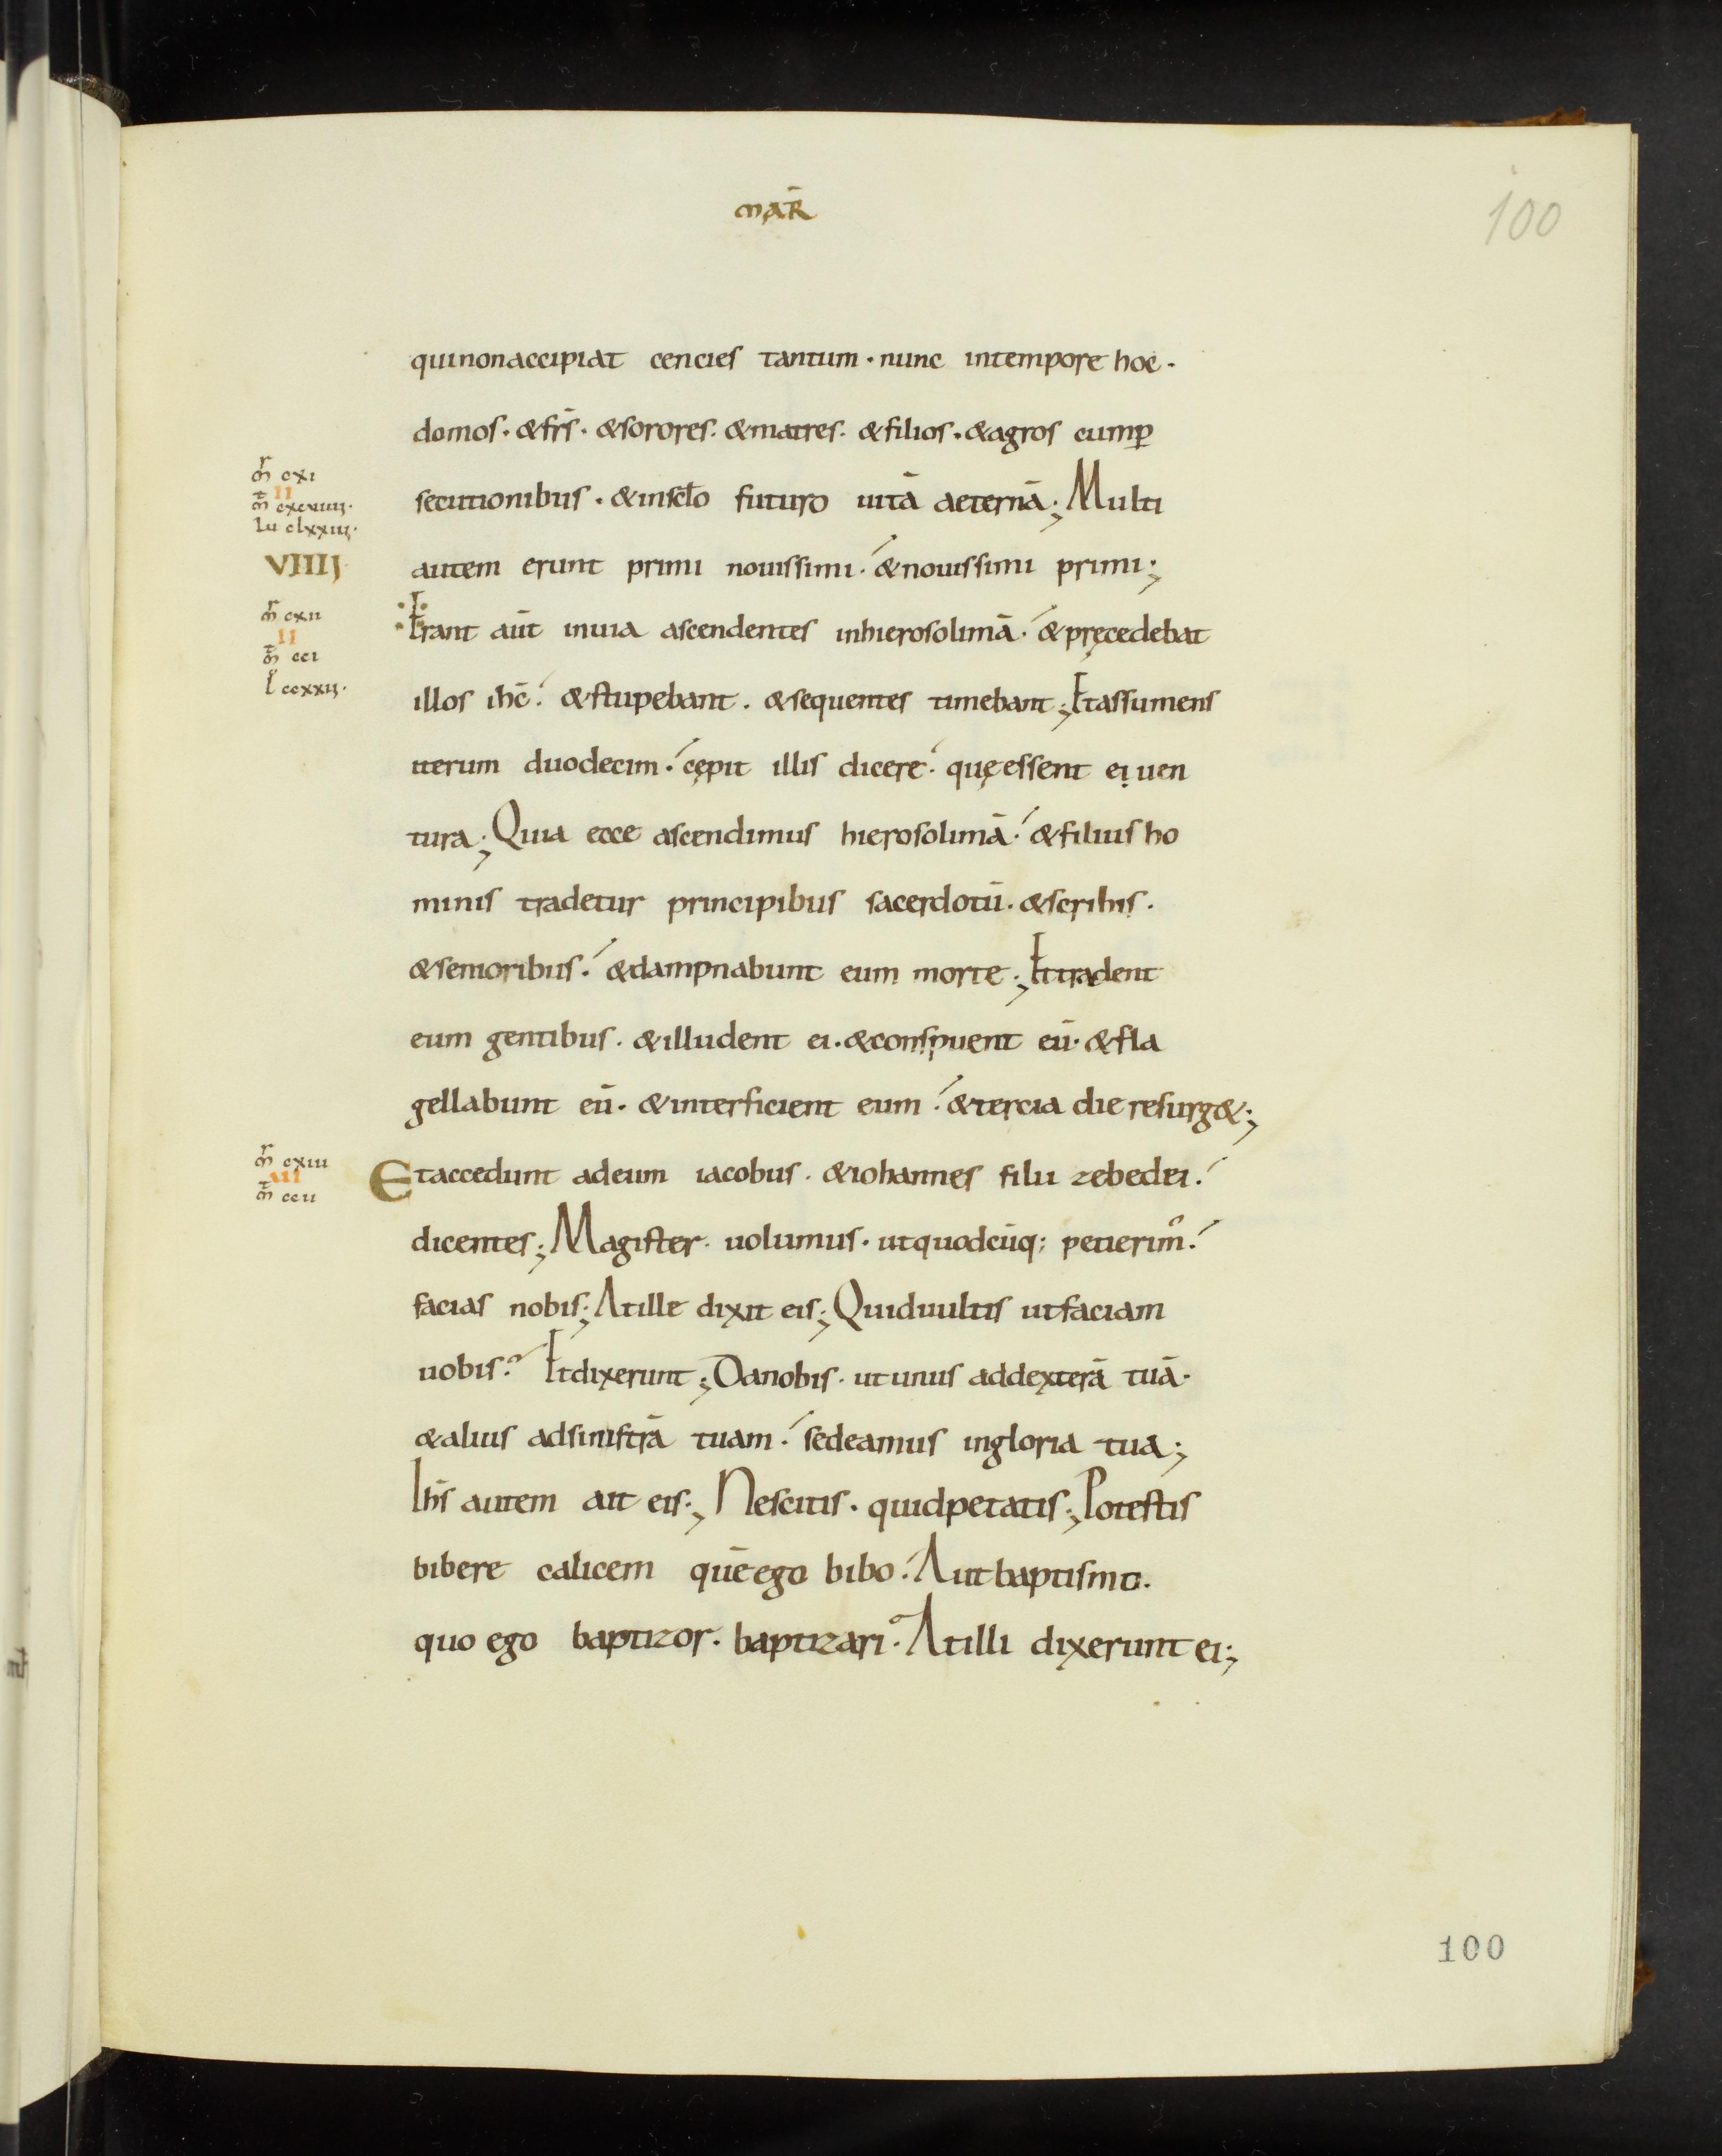 maR̄
100
quinonaccipiat cencies tantum · nunc intempore hoc ·
domos · &fr̄s · &sorores · &matres · &filios · &agros cump̱
m̊ cxi
secutionibus · &insc̄lo futuro uitā aeternā ; Multi
II
m̊ cxcuiiij ·
Lu clxxiij ·
VIIIJ
autem erunt primi nouissimi · &nouissimi primi ;
m̊ cxii
Erant aūt inuia ascendentes inhierosolimā · &pręcedebat
II
m̊ cci
l ccxxij ·
illos ih̄c · &stupebant · &sequentes timebant ; Etassumens
iterum duodecim · cępit illis dicere · quęessent ei uen
tura ; Quia ecce ascendimus hierosolimā · &filius ho
minis tradetur principibus sacerdotū · &scribis ·
&senioribus · &dampnabunt eum morte ; Ettradent
eum gentibus · &illudent ei · &conspuent eū · &fla
gellabunt eū · &interficient eum · &tercia die resurg& ;
m̊ cxiii
Etaccedunt adeum iacobus · &iohannes filii zebedei ·
m̊ ccii
dicentes ; Magister · uolumus · utquodcūq; petierim᾿ ·
facias nobis ; Atille dixit eis ; Quiduultis utfaciam
uobis ? Etdixerunt ; Danobis · ut unus addexterā tuā ·
&alius adsinistrā tuam · sedeamus ingloria tua ;
Ih̄s autem ait eis ; Nescitis · quidpetatis ; Potestis
bibere calicem quēego bibo · Autbaptismo ·
quo ego baptizor · baptizari ? Atilli dixerunt ei ;
100